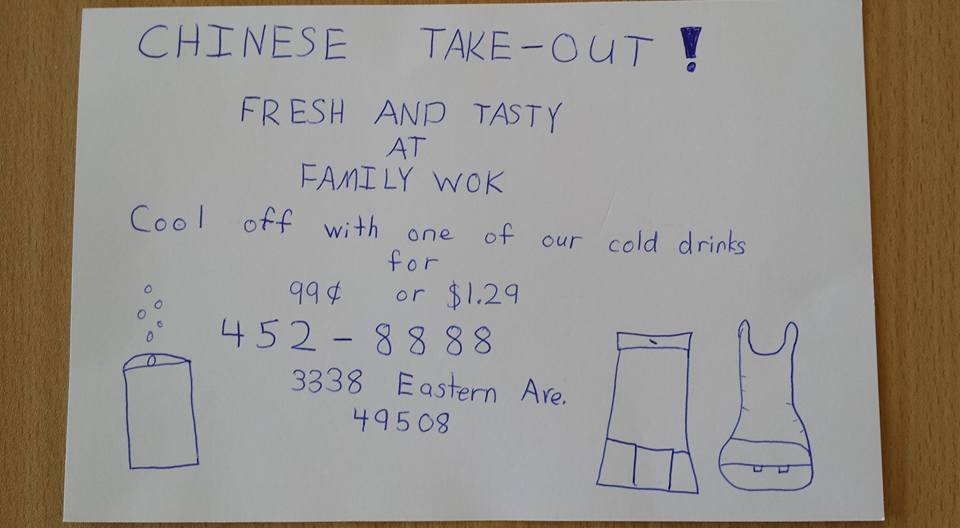 CHINESE TAKE-OUT!
FRESH AND TASTY
AT
FAMILY WOK
Cool off with one of our cold drinks
for
99¢ or $1.29
452-8888
3338 Eastern Are.
49508